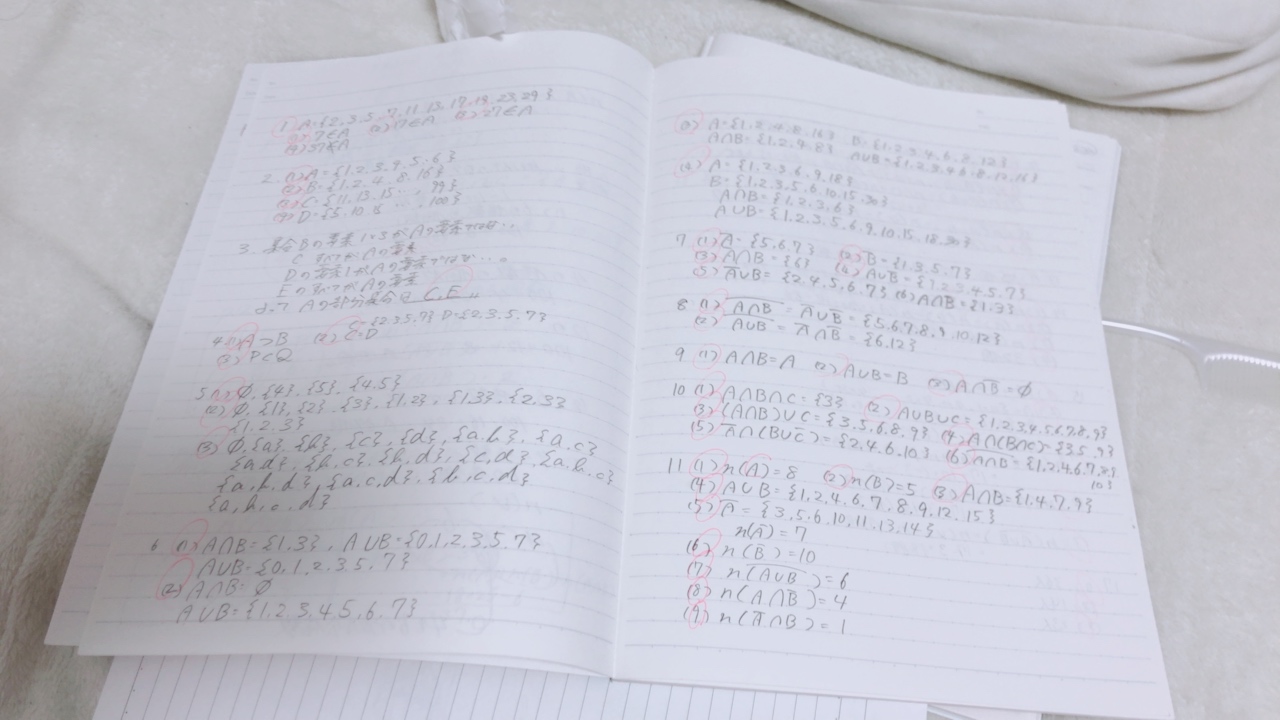 1 A={2.3.5.7.11.13.17.19.23.29}
(1) 7∈A (2) 17∈A (3) 27∉A
(4) 37∉A
2 (1) A={1.2.3.4.5.6}
(2) B={1.2.4.8.16}
(3) C={11.13.15…, 99}
(4) D={5.10.15 …, 100}
3. 集合Bの要素1と3がAの要素
C すべてがAの要素
Dの要素1がAの要素
EのすべてがAの要素
よって Aの部分集合は C,E 〃
C={2.3.5.7} D={2.3.5.7}
4 (1) A⊃B (2) C=D
(3) P⊂Q
5 (1) ∅, {4}, {5}, {4.5}
(2) ∅, {1}, {2}, {3}, {1.2}, {1.3}, {2.3}
{1.2.3}
(3) ∅, {a}, {b}, {c}, {d}, {a.b}, {a.c}
{a.d}, {b.c}, {b.d}, {c.d}, {a.b.c}
{a.b.d}, {a.c.d}, {b.c.d}
{a.b.c.d}
6 (1) A∩B={1.3}, A∪B={0.1.2.3.5.7}
A∪B={0.1.2.3.5.7}
(2) A∩B=∅
A∪B={1.2.3.4.5.6.7}
(3) A={1.2.4.8.16} B={1.2.3.4.6.8.12}
A∩B={1.2.4.8} A∪B={1.2.3.4.6.8.12.16}
(4) A={1.2.3.6.9.18}
B={1.2.3.5.6.10.15.30}
A∩B={1.2.3.6}
A∪B={1.2.3.5.6.9.10.15.18.30}
7 (1) A̅={5.6.7} (2) B̅={1.3.5.7}
(3) A̅∩B={6} (4) A∪B̅={1.2.3.4.5.7}
(5) A̅∪B={2.4.5.6.7} (6) A∩B̅={1.3}
8 (1) A̅∩̅B̅ = A̅∪B̅={5.6.7.8.9.10.12}
(2) A̅∪̅B̅ = A̅∩B̅={6.12}
9 (1) A∩B=A (2) A∪B=B (3) A∩B̅=∅
10 (1) A∩B∩C={3} (2) A∪B∪C={1.2.3.4.5.6.7.8.9}
(3) (A∩B)∪C={3.5.6.8.9} (4) A∩(B∩C)={3.5.9}
(5) A̅∩(B∪C̅)={2.4.6.10} (6) A̅∩̅B̅={1.2.4.6.7.8.
10}
11 (1) n(A)=8 (2) n(B)=5 (3) A∩B={1.4.7.9}
(4) A∪B={1.2.4.6.7.8.9.12.15}
(5) A̅={3.5.6.10.11.13.14}
n(A̅)=7
(6) n(B̅)=10
(7) n(A̅∪̅B̅)=6
(8) n(A∩B̅)=4
(9) n(A̅∩B)=1